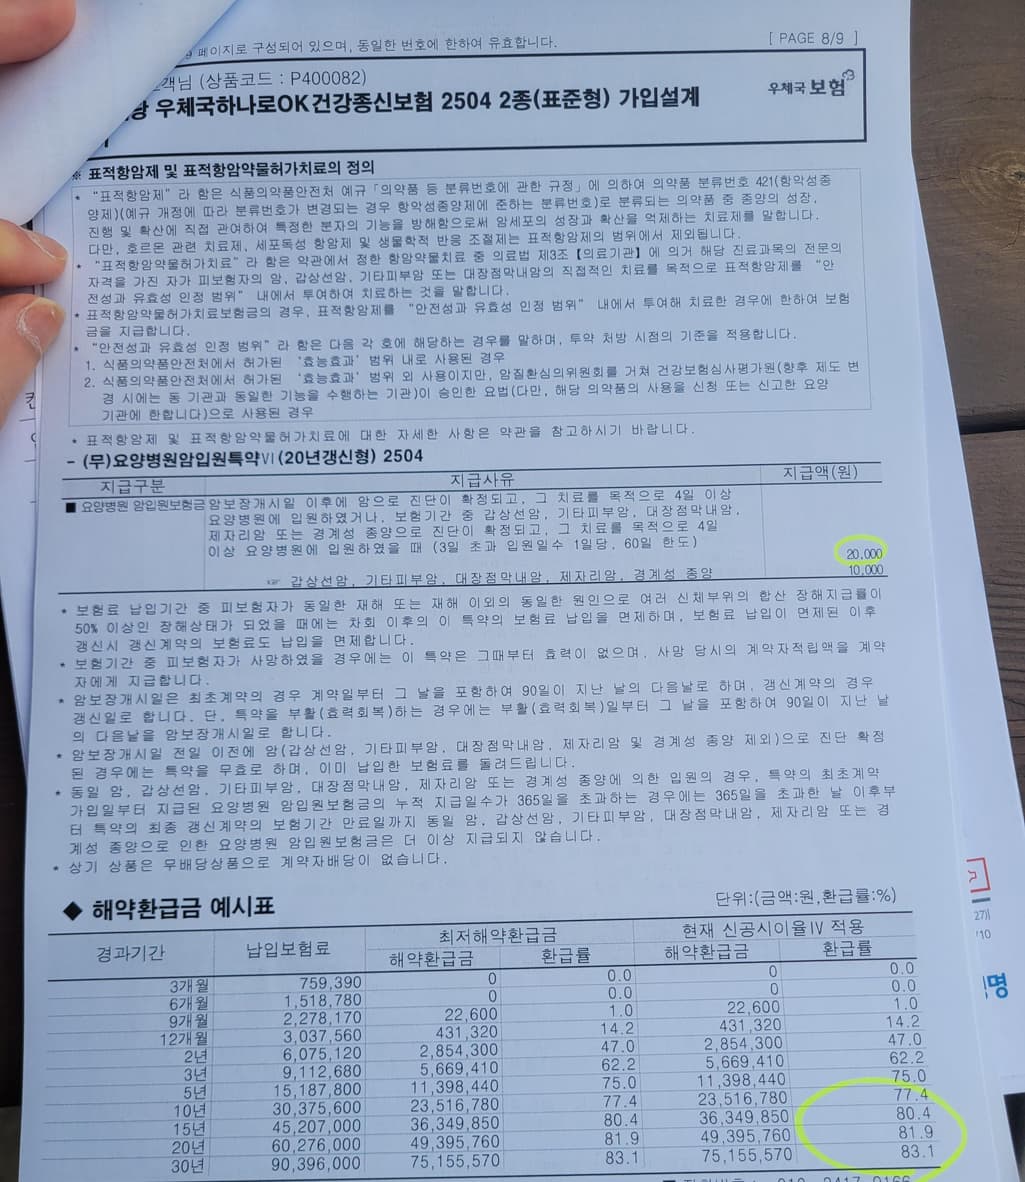 페이지로 구성되어 있으며, 동일한 번호에 한하여 유효합니다.
[ PAGE 8/9 ]
객님 (상품코드 : P400082)
우체국하나로OK건강종신보험 2504 2종(표준형) 가입설계
우체국 보험
※ 표적항암제 및 표적항암약물허가치료의 정의
* “표적항암제” 라 함은 식품의약품안전처 예규「의약품 등 분류번호에 관한 규정」에 의하여 의약품 분류번호 421(항악성종
양제)(예규 개정에 따라 분류번호가 변경되는 경우 항악성종양제에 준하는 분류번호)로 분류되는 의약품 중 종양의 성장,
진행 및 확산에 직접 관여하여 특정한 분자의 기능을 방해함으로써 암세포의 성장과 확산을 억제하는 치료제를 말합니다.
다만, 호르몬 관련 치료제, 세포독성 항암제 및 생물학적 반응 조절제는 표적항암제의 범위에서 제외됩니다.
* “표적항암약물허가치료” 라 함은 약관에서 정한 항암약물치료 중 의료법 제3조【의료기관】에 의거 해당 진료과목의 전문의
자격을 가진 자가 피보험자의 암, 갑상선암, 기타피부암 또는 대장점막내암의 직접적인 치료를 목적으로 표적항암제를 “안
전성과 유효성 인정 범위” 내에서 투여하여 치료하는 것을 말합니다.
* 표적항암약물허가치료보험금의 경우, 표적항암제를 “안전성과 유효성 인정 범위” 내에서 투여해 치료한 경우에 한하여 보험
금을 지급합니다.
* “안전성과 유효성 인정 범위” 라 함은 다음 각 호에 해당하는 경우를 말하며, 투약 처방 시점의 기준을 적용합니다.
1. 식품의약품안전처에서 허가된 ‘효능효과’ 범위 내로 사용된 경우
2. 식품의약품안전처에서 허가된 ‘효능효과’ 범위 외 사용이지만, 암질환심의위원회를 거쳐 건강보험심사평가원(향후 제도 변
경 시에는 동 기관과 동일한 기능을 수행하는 기관)이 승인한 요법(다만, 해당 의약품의 사용을 신청 또는 신고한 요양
기관에 한합니다)으로 사용된 경우
* 표적항암제 및 표적항암약물허가치료에 대한 자세한 사항은 약관을 참고하시기 바랍니다.
- (무)요양병원암입원특약Ⅵ(20년갱신형) 2504
지급구분 지급사유 지급액(원)
■ 요양병원 암입원보험금 암보장개시일 이후에 암으로 진단이 확정되고, 그 치료를 목적으로 4일 이상
요양병원에 입원하였거나, 보험기간 중 갑상선암, 기타피부암, 대장점막내암,
제자리암 또는 경계성 종양으로 진단이 확정되고, 그 치료를 목적으로 4일
이상 요양병원에 입원하였을 때 (3일 초과 입원일수 1일당, 60일 한도) 20,000
☞ 갑상선암, 기타피부암, 대장점막내암, 제자리암, 경계성 종양 10,000
* 보험료 납입기간 중 피보험자가 동일한 재해 또는 재해 이외의 동일한 원인으로 여러 신체부위의 합산 장해지급률이
50% 이상인 장해상태가 되었을 때에는 차회 이후의 이 특약의 보험료 납입을 면제하며, 보험료 납입이 면제된 이후
갱신시 갱신계약의 보험료도 납입을 면제합니다.
* 보험기간 중 피보험자가 사망하였을 경우에는 이 특약은 그때부터 효력이 없으며, 사망 당시의 계약자적립액을 계약
자에게 지급합니다.
* 암보장개시일은 최초계약의 경우 계약일부터 그 날을 포함하여 90일이 지난 날의 다음날로 하며, 갱신계약의 경우
갱신일로 합니다. 단, 특약을 부활(효력회복)하는 경우에는 부활(효력회복)일부터 그 날을 포함하여 90일이 지난 날
의 다음날을 암보장개시일로 합니다.
* 암보장개시일 전일 이전에 암(갑상선암, 기타피부암, 대장점막내암, 제자리암 및 경계성 종양 제외)으로 진단 확정
된 경우에는 특약을 무효로 하며, 이미 납입한 보험료를 돌려드립니다.
* 동일 암, 갑상선암, 기타피부암, 대장점막내암, 제자리암 또는 경계성 종양에 의한 입원의 경우, 특약의 최초계약
가입일부터 지급된 요양병원 암입원보험금의 누적 지급일수가 365일을 초과하는 경우에는 365일을 초과한 날 이후부
터 특약의 최종 갱신계약의 보험기간 만료일까지 동일 암, 갑상선암, 기타피부암, 대장점막내암, 제자리암 또는 경
계성 종양으로 인한 요양병원 암입원보험금은 더 이상 지급되지 않습니다.
* 상기 상품은 무배당상품으로 계약자배당이 없습니다.
◆ 해약환급금 예시표
단위:(금액:원,환급률:%)
경과기간 납입보험료 최저해약환급금 현재 신공시이율Ⅳ 적용
해약환급금 환급률 해약환급금 환급률
3개월 759,390 0 0.0 0 0.0
6개월 1,518,780 0 0.0 0 0.0
9개월 2,278,170 22,600 1.0 22,600 1.0
12개월 3,037,560 431,320 14.2 431,320 14.2
2년 6,075,120 2,854,300 47.0 2,854,300 47.0
3년 9,112,680 5,669,410 62.2 5,669,410 62.2
5년 15,187,800 11,398,440 75.0 11,398,440 75.0
10년 30,375,600 23,516,780 77.4 23,516,780 77.4
15년 45,207,000 36,349,850 80.4 36,349,850 80.4
20년 60,276,000 49,395,760 81.9 49,395,760 81.9
30년 90,396,000 75,155,570 83.1 75,155,570 83.1